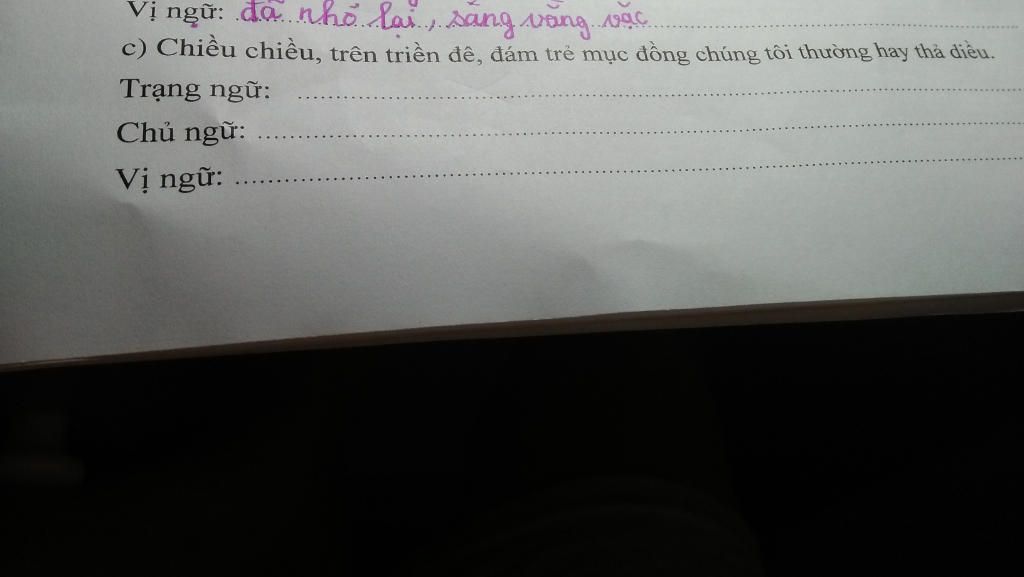 Vị ngữ: đã nhỏ lại, sáng vằng vặc
c) Chiều chiều, trên triền đê, đám trẻ mục đồng chúng tôi thường hay thả diều.
Trạng ngữ:
Chủ ngữ:
Vị ngữ: